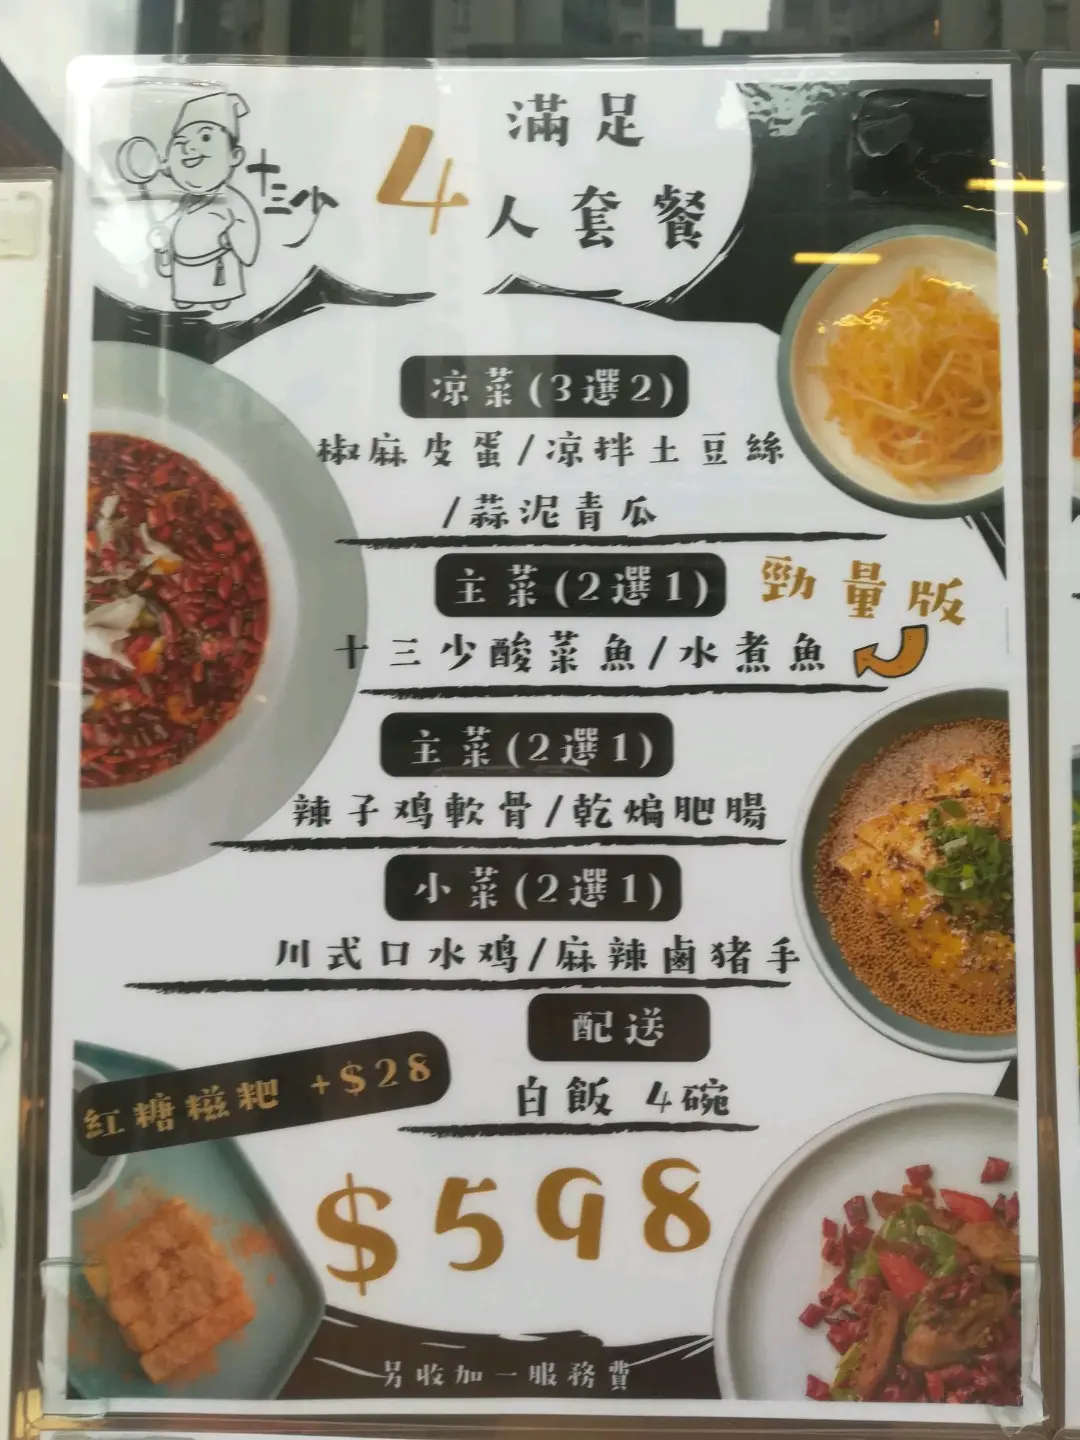 十三少
滿足
4人套餐
凉菜(3選2)
椒麻皮蛋/凉拌土豆絲
/蒜泥青瓜
主菜(2選1)
勁量版
十三少酸菜魚/水煮魚
主菜(2選1)
辣子鸡軟骨/乾煸肥腸
小菜(2選1)
川式口水鸡/麻辣鹵猪手
配送
白飯 4碗
紅糖糍粑 +$28
$598
另收加一服務費